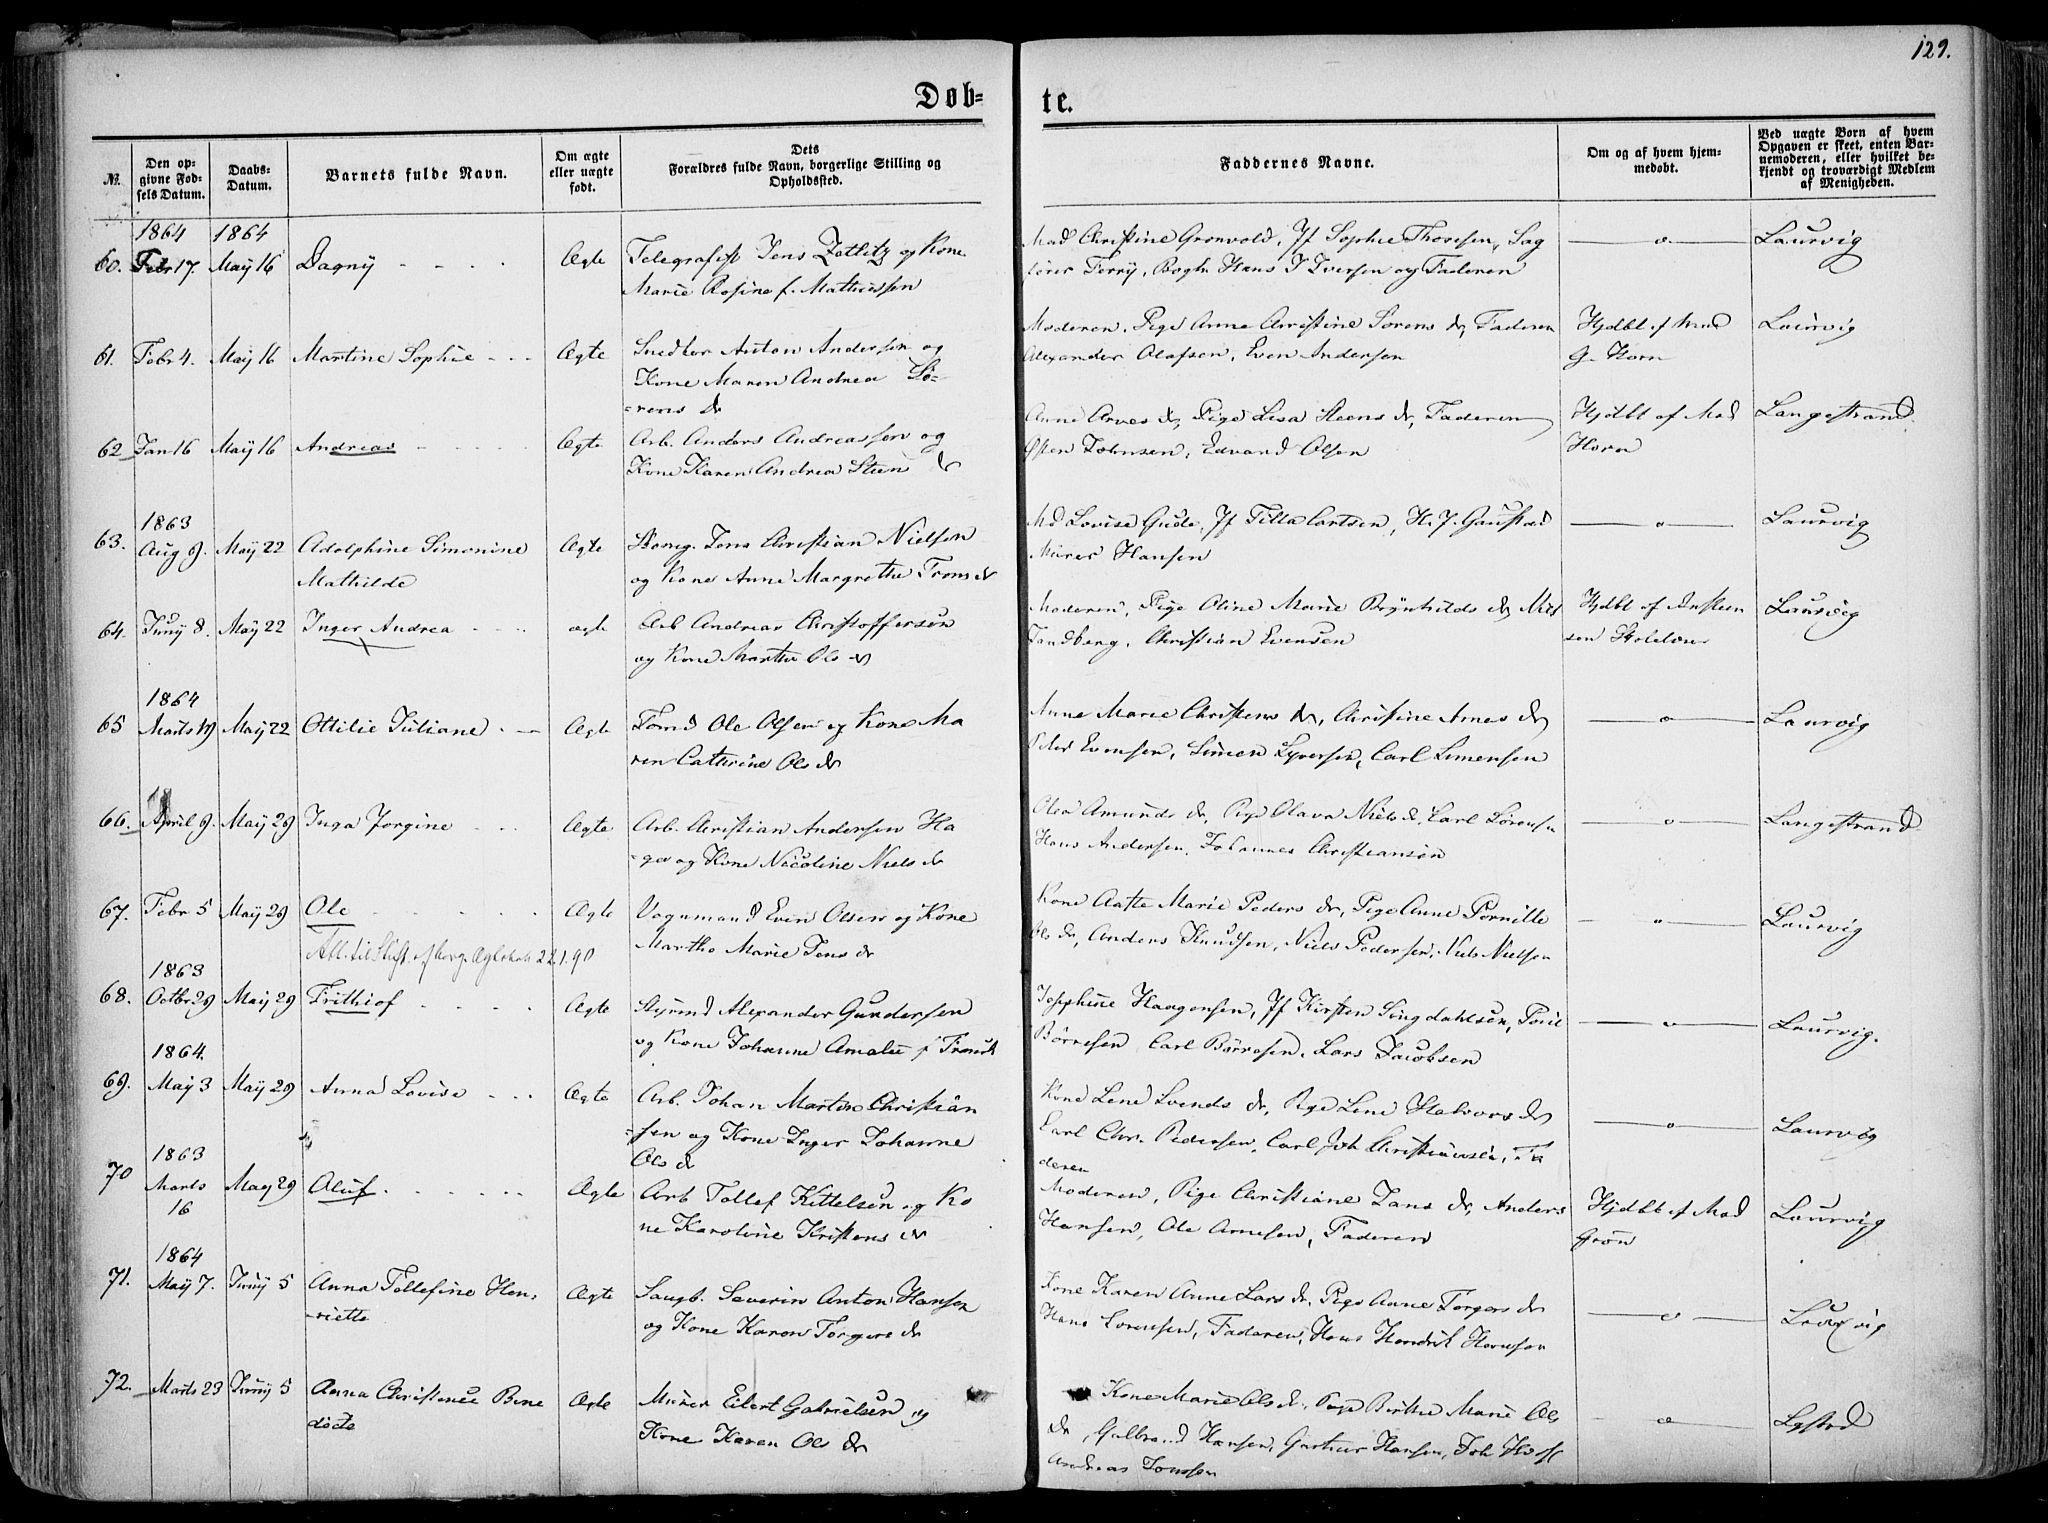 129.
Døb-
te.
№.
Den op-
givne Fød-
sels Datum.
Daabs-
Datum.
Barnets fulde Navn.
Om ægte
eller uægte
født.
Dets
Forældres fulde Navn, borgerlige Stilling og
Opholdssted.
Faddernes Navne.
Om og af hvem hjem-
medøbt.
Ved uægte Børn af hvem
Opgaven er skeet, enten Bar-
nemoderen, eller hvilket be-
kjendt og troværdigt Medlem
af Menigheden.
1864 1864
60. Febr 17. May 16 Dagny Ægte Telegrafist Jens Zetlitz og Kone
Marie Rosine f. Mathiesen
Mad Christine Grønvold, Jf Sophie Thomsen, Sag
fører Ferry, Bogh. Hans J Iversen og Faderen
Laurvig
61. Febr 4. May 16 Martine Sophie Ægte Snedker Anton Andersen og
Kone Maren Andrea Sö-
-rens dr
Moderen, Pige Anne Christine Sorens dr, Faderen
Alexander Olafsen, Even Andersen
Hjdbt af Mad
G. Horn
Laurvig
62 Jan 16 May 16 Andreas Ægte Arb. Anders Andreassen og
Kone Karen Andrea Steens dr
Anne Arves dr, Pige Lisa Steens dr, Faderen
Østen Johnsen, Edvard Olsen
Hjdbt af Mad
Horn
Langestrand.
1863
63. Aug 9. May 22 Adolphine Simonine
Mathilde
Ægte Jens Christian Nielsen
og Kone Anne Margrethe Trons dr
Md Lovise Gude, Jf Tilla Carlsen, H. J. Gaustad
Murer Hansen
Laurvig
64. Juny 8. May 22 Inger Andrea ægte Arb Andreas Christoffersen
og Kone Marthe Ols dr
Moderen, Pige Oline Marie Brynhilds dr,
Sandberg, Christian Evensen
Hjdbt af
Laurvig
1864
65 Marts 19 May 22 Ottilie Juliane Ægte Tømd Ole Olsen og Kone Ma
ren Cathrine Ols dr
Anne Marie Christens dr, Christine Arnes dr
Peder Evensen, Simen Syversen, Carl Simensen
Laurvig
66. April 9. May 29 Inga Jørgine Ægte Arb. Christian Andersen Ha
-ga og Kone Nicoline Niels dr
Olea Amunds dr, Pige Olava Niels dr, Carl Sörensen
Hans Andersen, Johannes Christiansen
Langestrand
67. Febr 5 May 29 Ole Ægte Vognmand Even Olsen og Kone
Marthe Marie Jens dr
Kone Aaste Marie Peders dr, Pige Anne Pernille
Ols dr, Anders Knudsen, Niels Pedersen, Niels Nielsen
Laurvig
Att. til 22.1.90
1863
68. Octbr 29 May 29 Frithiof Ægte Styrmd Alexander Gundersen
og Kone Johanne Amalie f
Josephine Haagensen, Jf Kirsten Singdahlsen,
Börresen, Carl Börresen, Lars Jacobsen
Laurvig.
1864.
69. May 3 May 29 Anna Lovise Ægte Arb. Johan Martin Christian
-sen og Kone Inger Johanne
Ols dr
Kone Lene Svends dr, Pige Lene Halvors dr
Carl Chr. Pedersen, Carl Joh Christiansen, Fa
deren
Laurvig
1863
70 Marts
16 May 29 Oluf Ægte Arb Tollef Kittelsen og Ko
ne Karoline Kristens dr
Moderen, Pige Christiane Jans dr, Anders
Hansen, Ole Arnesen, Faderen
Hjdbt af Mad
Grøn
Laurvig
1864
71. May 7. Juny 5 Anna Tollefine Hen-
-riette
Ægte Saugb. Severin Anton Hansen
og Kone Karen Torgers dr
Kone Karen Anne Lars dr, Pige Anne Torgers dr
Hans Sorensen, Faderen, Hans Hendrik Hansen
Laurvig
72. Marts 23 Juny 5 Anna Christence Bene
dicte
Ægte Murer Eilert Gabrielsen og
Kone Karen Ols dr
Kone Marie Ols dr, Pige Birthe Marie Ols
dr, Gulbrand Hansen, Hansen, Joh
Andreas Jonsen